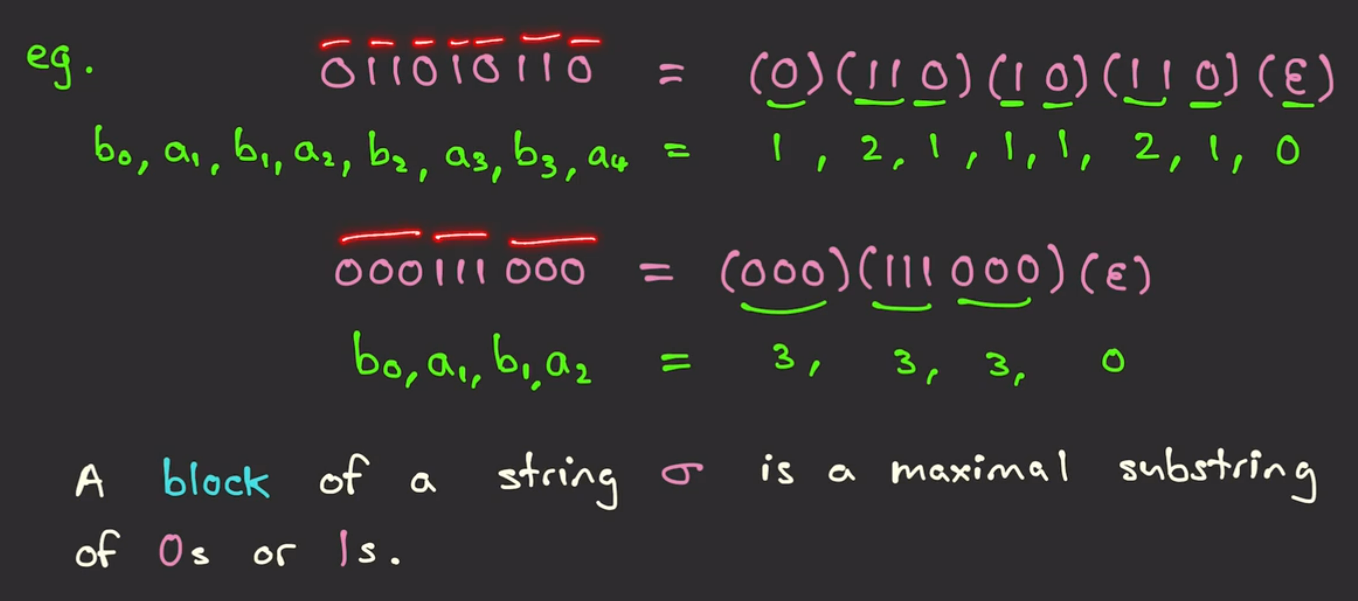 eg. 011010110 = (0)(110)(10)(110)(ε)
b₀, a₁, b₁, a₂, b₂, a₃, b₃, a₄ = 1, 2, 1, 1, 1, 2, 1, 0
000111000 = (000)(111000)(ε)
b₀, a₁, b₁, a₂ = 3, 3, 3, 0
A block of a string σ is a maximal substring
of 0s or 1s.